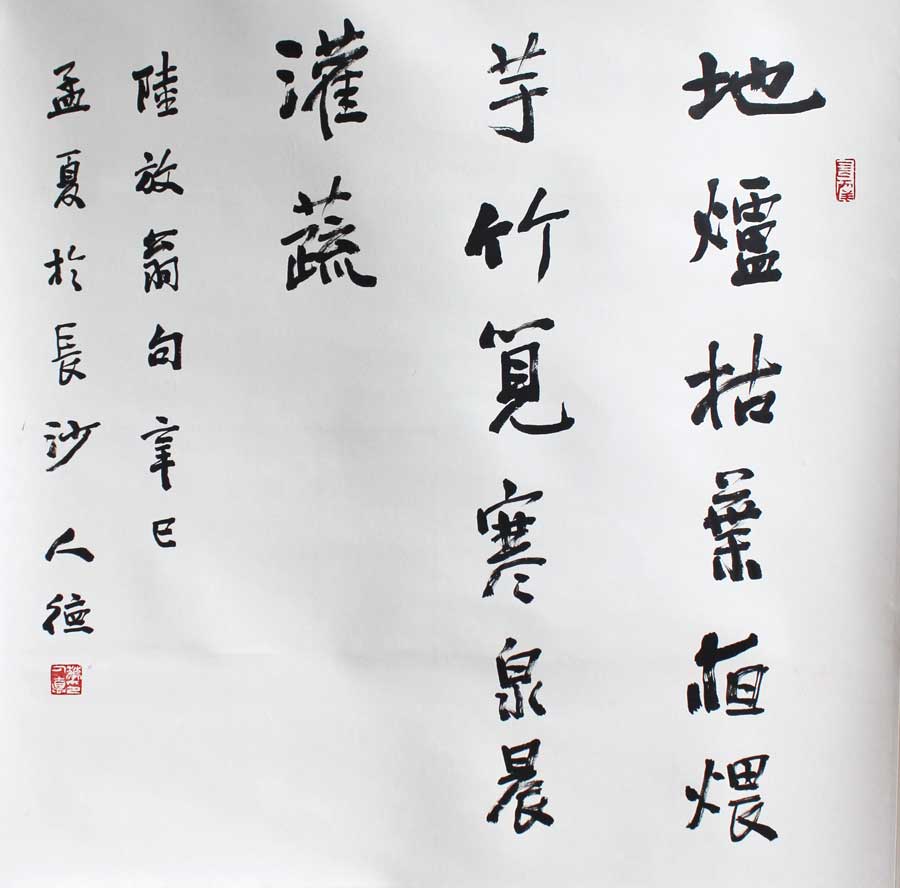 地爐枯葉煨
芋竹筧寒泉晨
灌蔬
陸放翁句辛巳
孟夏於長沙人德